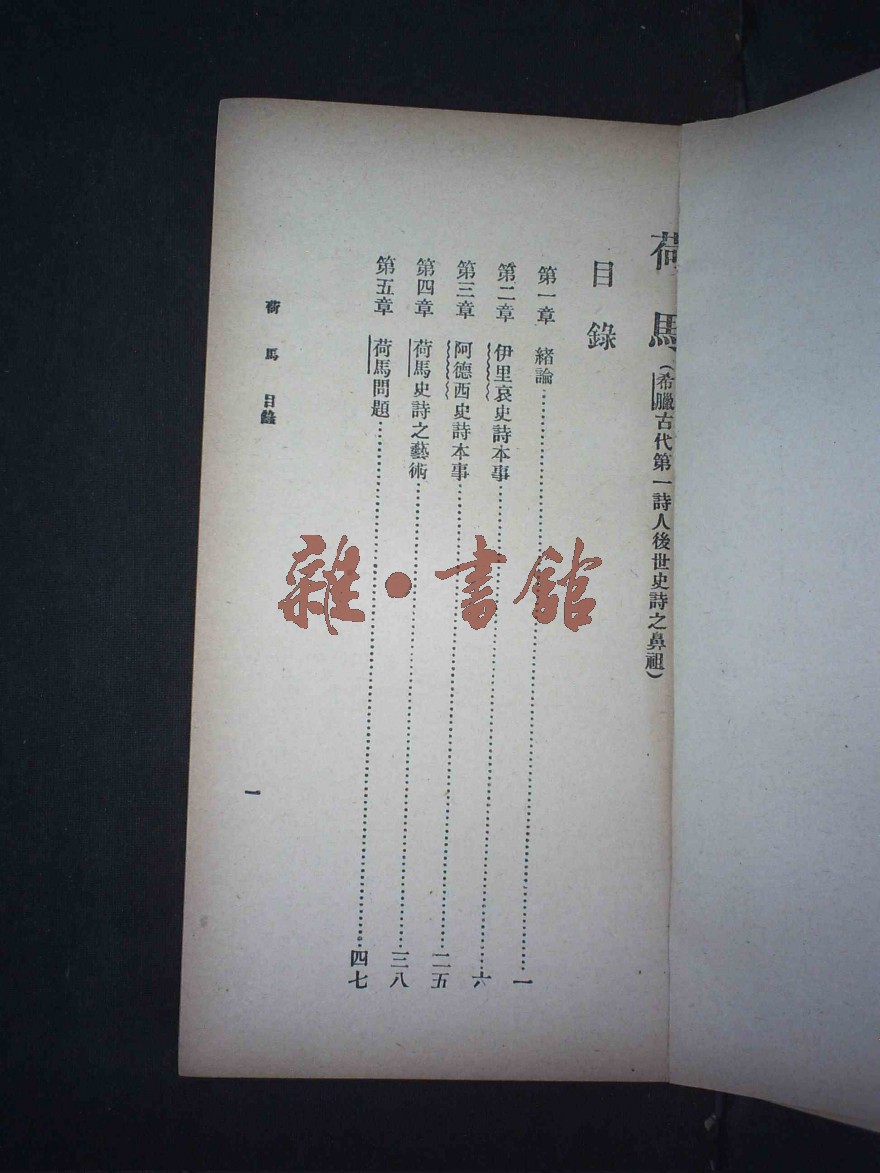 荷馬(希臘古代第一詩人後世史詩之鼻祖)
目錄
第一章 緒論……一
第二章 伊里哀史詩本事……六
第三章 阿德西史詩本事……二五
第四章 荷馬史詩之藝術……三八
第五章 荷馬問題……四七
荷馬 目錄
一
雜·書館